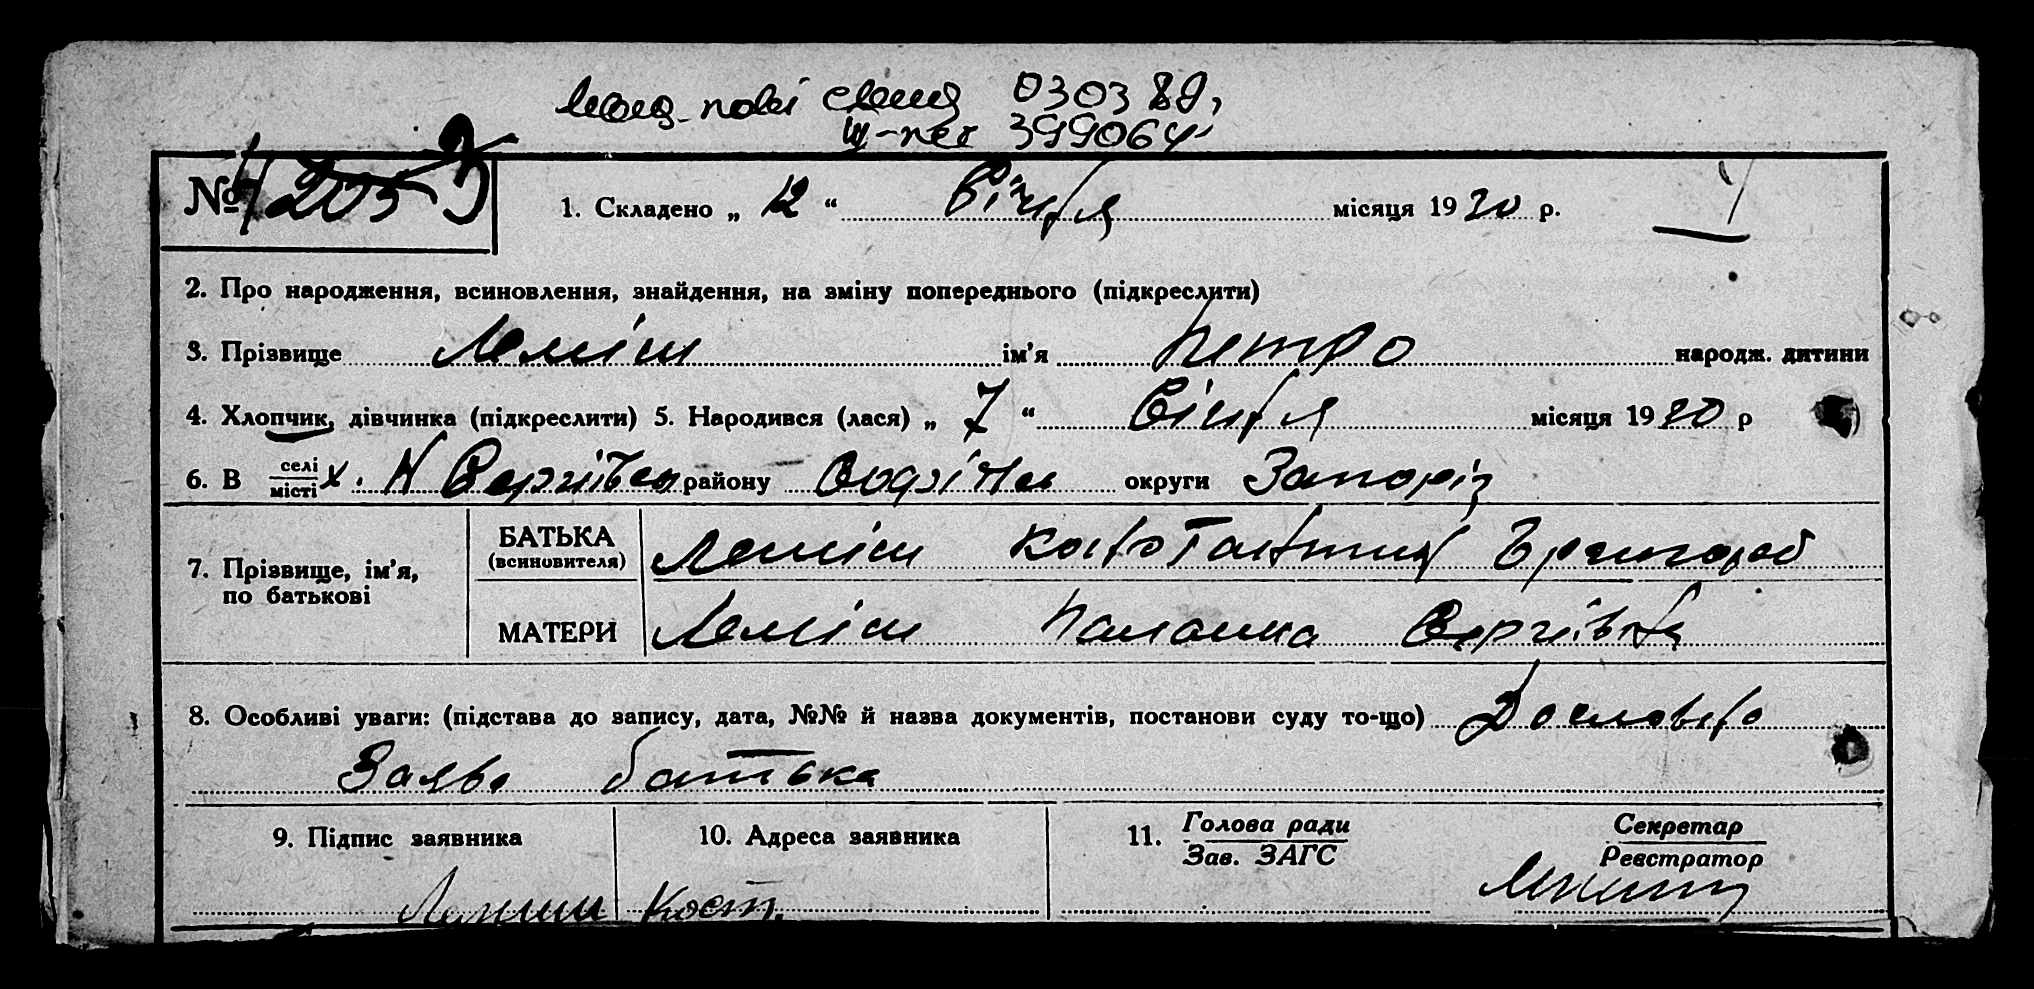 030389,
399064
№ 4 205
1. Складено „ 12 “ Січня місяця 1930 р.
2. Про народження, всиновлення, знайдення, на зміну попереднього (підкреслити)
3. Прізвище Леміш ім’я Петро народж. дитини
4. Хлопчик, дівчинка (підкреслити) 5. Народився (лася) „ 7 “ Січня місяця 1930 р
6. В селі місті х. району округи Запоріз
7. Прізвище, ім’я, по батькові
БАТЬКА (всиновителя) Леміш Костянтин Григоров
МАТЕРИ Леміш Палашка Сергіївна
8. Особливі уваги: (підстава до запису, дата, №№ й назва документів, постанови суду то-що) Дословно
Заява батька
9. Підпис заявника 10. Адреса заявника 11. Голова ради Зав. ЗАГС Секретар Реєстратор
Лемиш Кост.